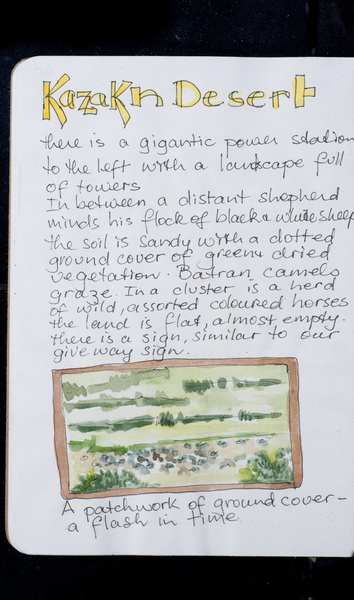 Kazakh Desert
there is a gigantic power station
to the left with a landscape full
of towers
In between a distant shepherd
minds his flock of black & white sheep
the soil is sandy with a dotted
ground cover of green & dried
vegetation. Batran camels
graze. In a cluster is a herd
of wild, assorted coloured horses
the land is flat, almost empty.
there is a sign, similar to our
give way sign.
A patchwork of ground cover -
a flash in time